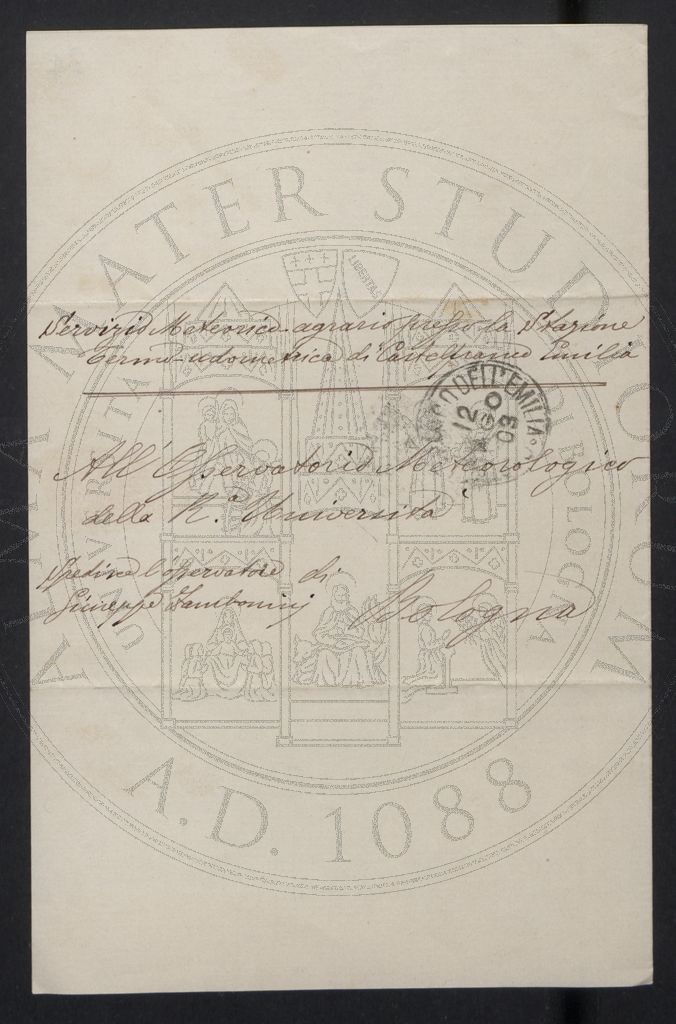 Servizio Meteorico-agrario presso la Stazione
Termo-udometrica di Castelfranco Emilia
DELL'EMILIA
12
03
All'Osservatorio Meteorologico
della R.a Università
di
Bologna
Spedisce l'osservatore
Giuseppe Zambonini
ALMA MATER STUDIORUM
UNIVERSITÀ DI BOLOGNA
LIBERTAS
A.D. 1088